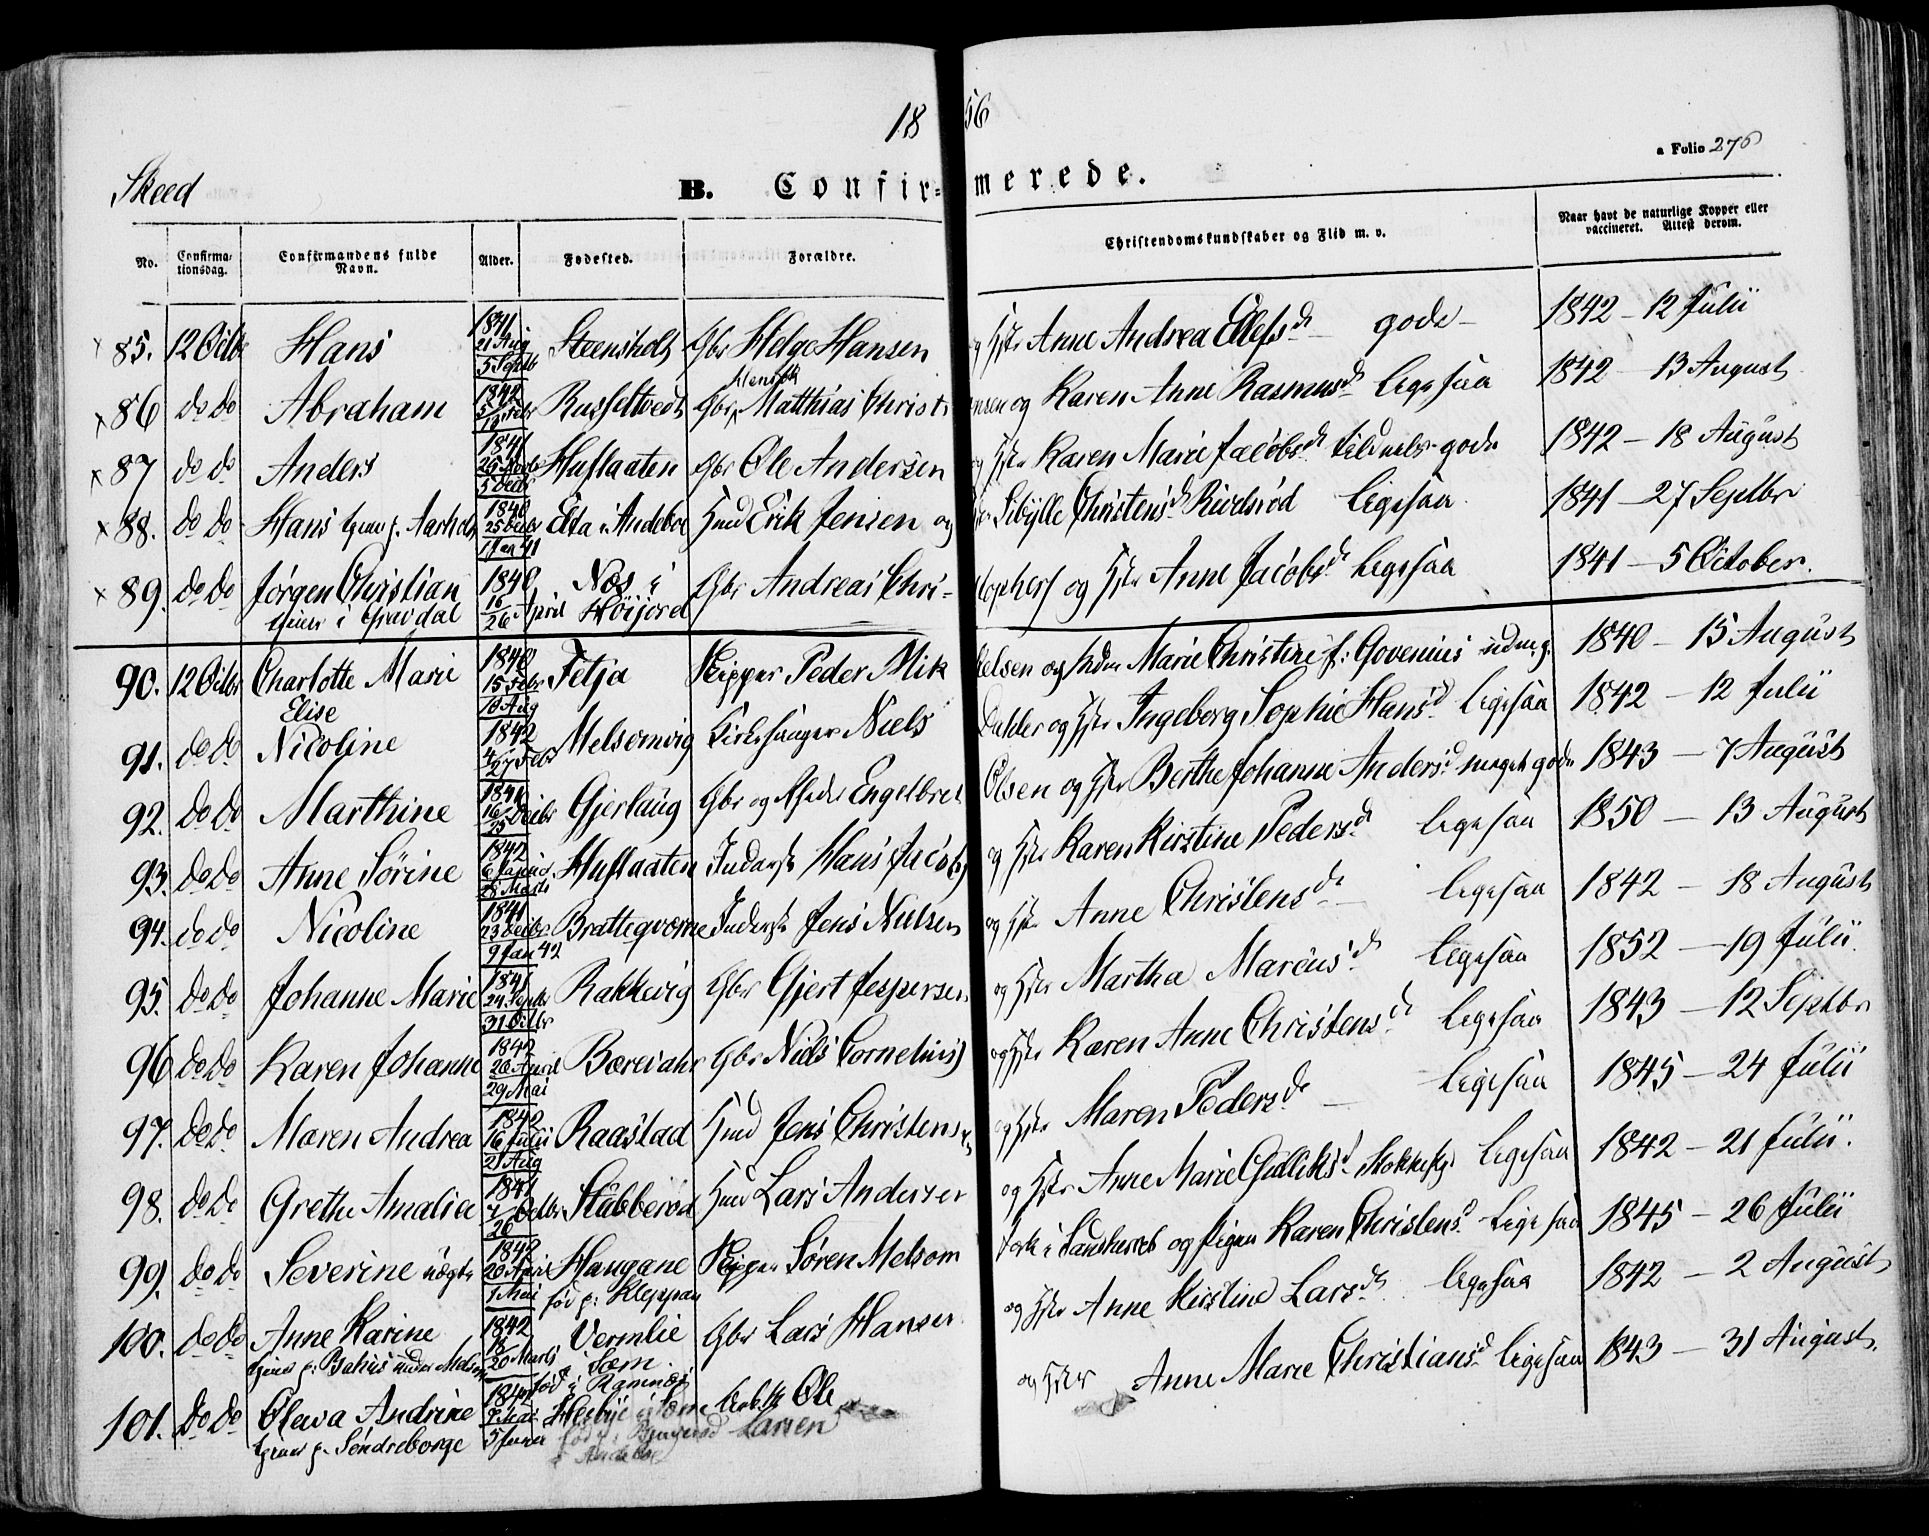 18 56
a Folio 276
Skeed
B. Confir- merede.
No. Confirmationsdag. Confirmandens fulde Navn. Alder. Fødested. Forældre. Christendomskundskaber og Flid m. v. Naar havt de naturlige Kopper eller vaccineret. Attest derom.
85. 12 Octbr Hans 1841 21 Aug 5 Septb Steensholt Gbr Helge Hansen og Hstr Anne Andrea Ellefsd. gode 1842 - 12 Julii
86 do do Abraham 1842 Gbr Matthias Christensen og Karen Anne Rasmusd. ligesaa 1842 - 13 August
87 do do Anders 1841 5 Decbr Huflaaten Gbr Ole Andersen og Hstr Karen Marie Jacobsd. gode 1842 - 18 August
88. do do Hans 1840 25 Decbr 1 Jan 41 i Andeboe Hmd Erik Jensen og Hstr Sibylle Christensd. ligesaa 1841 - 27 Septbr
89. do do Jörgen Christian tjener i Gravdal 1840 16/26 April Næs i Höijord Gbr Andreas Christophers og Hstr Anne Jacobsd. ligesaa 1841 - 5 October.
90. 12 Octbr Charlotte Marie Elise 1840 15 Febr 16 Aug Fetja Skipper Peder Mikkelsen og Marie Christine f: Govenius udm. g. 1840 - 15 August
91. do do Nicoline 1842 4/27 Febr Melsomvig Kirkesanger Niels Dahler og Hstr Ingeborg Sophie Hansd. ligesaa 1842 - 12 Julii
92. do do Marthine 1841 16/25 Decbr Gjerlaug Gbr og Engelbret Olsen og Hstr Berthe Johanne Andersd. meget gode 1843 - 7 August
93. do do Anne Sörine 1842 6 Januar 28 Marts Huflaaten Inderst Hans Jacobs og Hstr Karen Kirstine Pedersd. ligesaa 1850 - 13 August
94. do do Nicoline 1841 23 Decbr 9 Jan 42 Bratteqværne Inderst Jens Nielsen og Hstr Anne Christensd. ligesaa 1842 - 18 August
95. do do Johanne Marie 1841 24 Septbr 31 Octbr Rakkevig Gbr Gjert Jespersen og Hstr Martha Marcusd. ligesaa 1852 - 19 Julii.
96 do do Karen Johanne 1842 26 April 29 Mai Bærevahr Gbr Niels Cornelius og Hstr Karen Anne Christensd. ligesaa 1843 - 12 Septbr
97. do do Maren Andrea 1842 16 Julii 21 Aug Raastad Hmd Jens Christensen og Hstr Maren Pedersd. ligesaa 1845 - 24 Julii
98. do do Grethe Amalia 1841 7/26 Octbr Stubberød Hmd Lars Andersen og Hstr Anne Marie Gulliksd. ligesaa 1842 - 21 Julii.
99. do do Severine uægte 1842 20 April 1 Mai Haugane fød p: Kleppan Skipper Sören Melsom og Pigen Karen Christensd. ligesaa 1845 - 26 Julii
100. do do Anne Karine 1842 18/20 Marts Vermlie i Sæm fød i Ramnæs Gbr Lars Hansen og Hstr Anne Kirstine Larsd. ligesaa 1842 - 2 August
101. do do Oleva Andrine tjener p. Söndreborge 1842 5 Juni i Sæm fød p: i Andeboe Ole Larsen og Hstr Anne Marie Christiansd. ligesaa 1843 - 31 August.